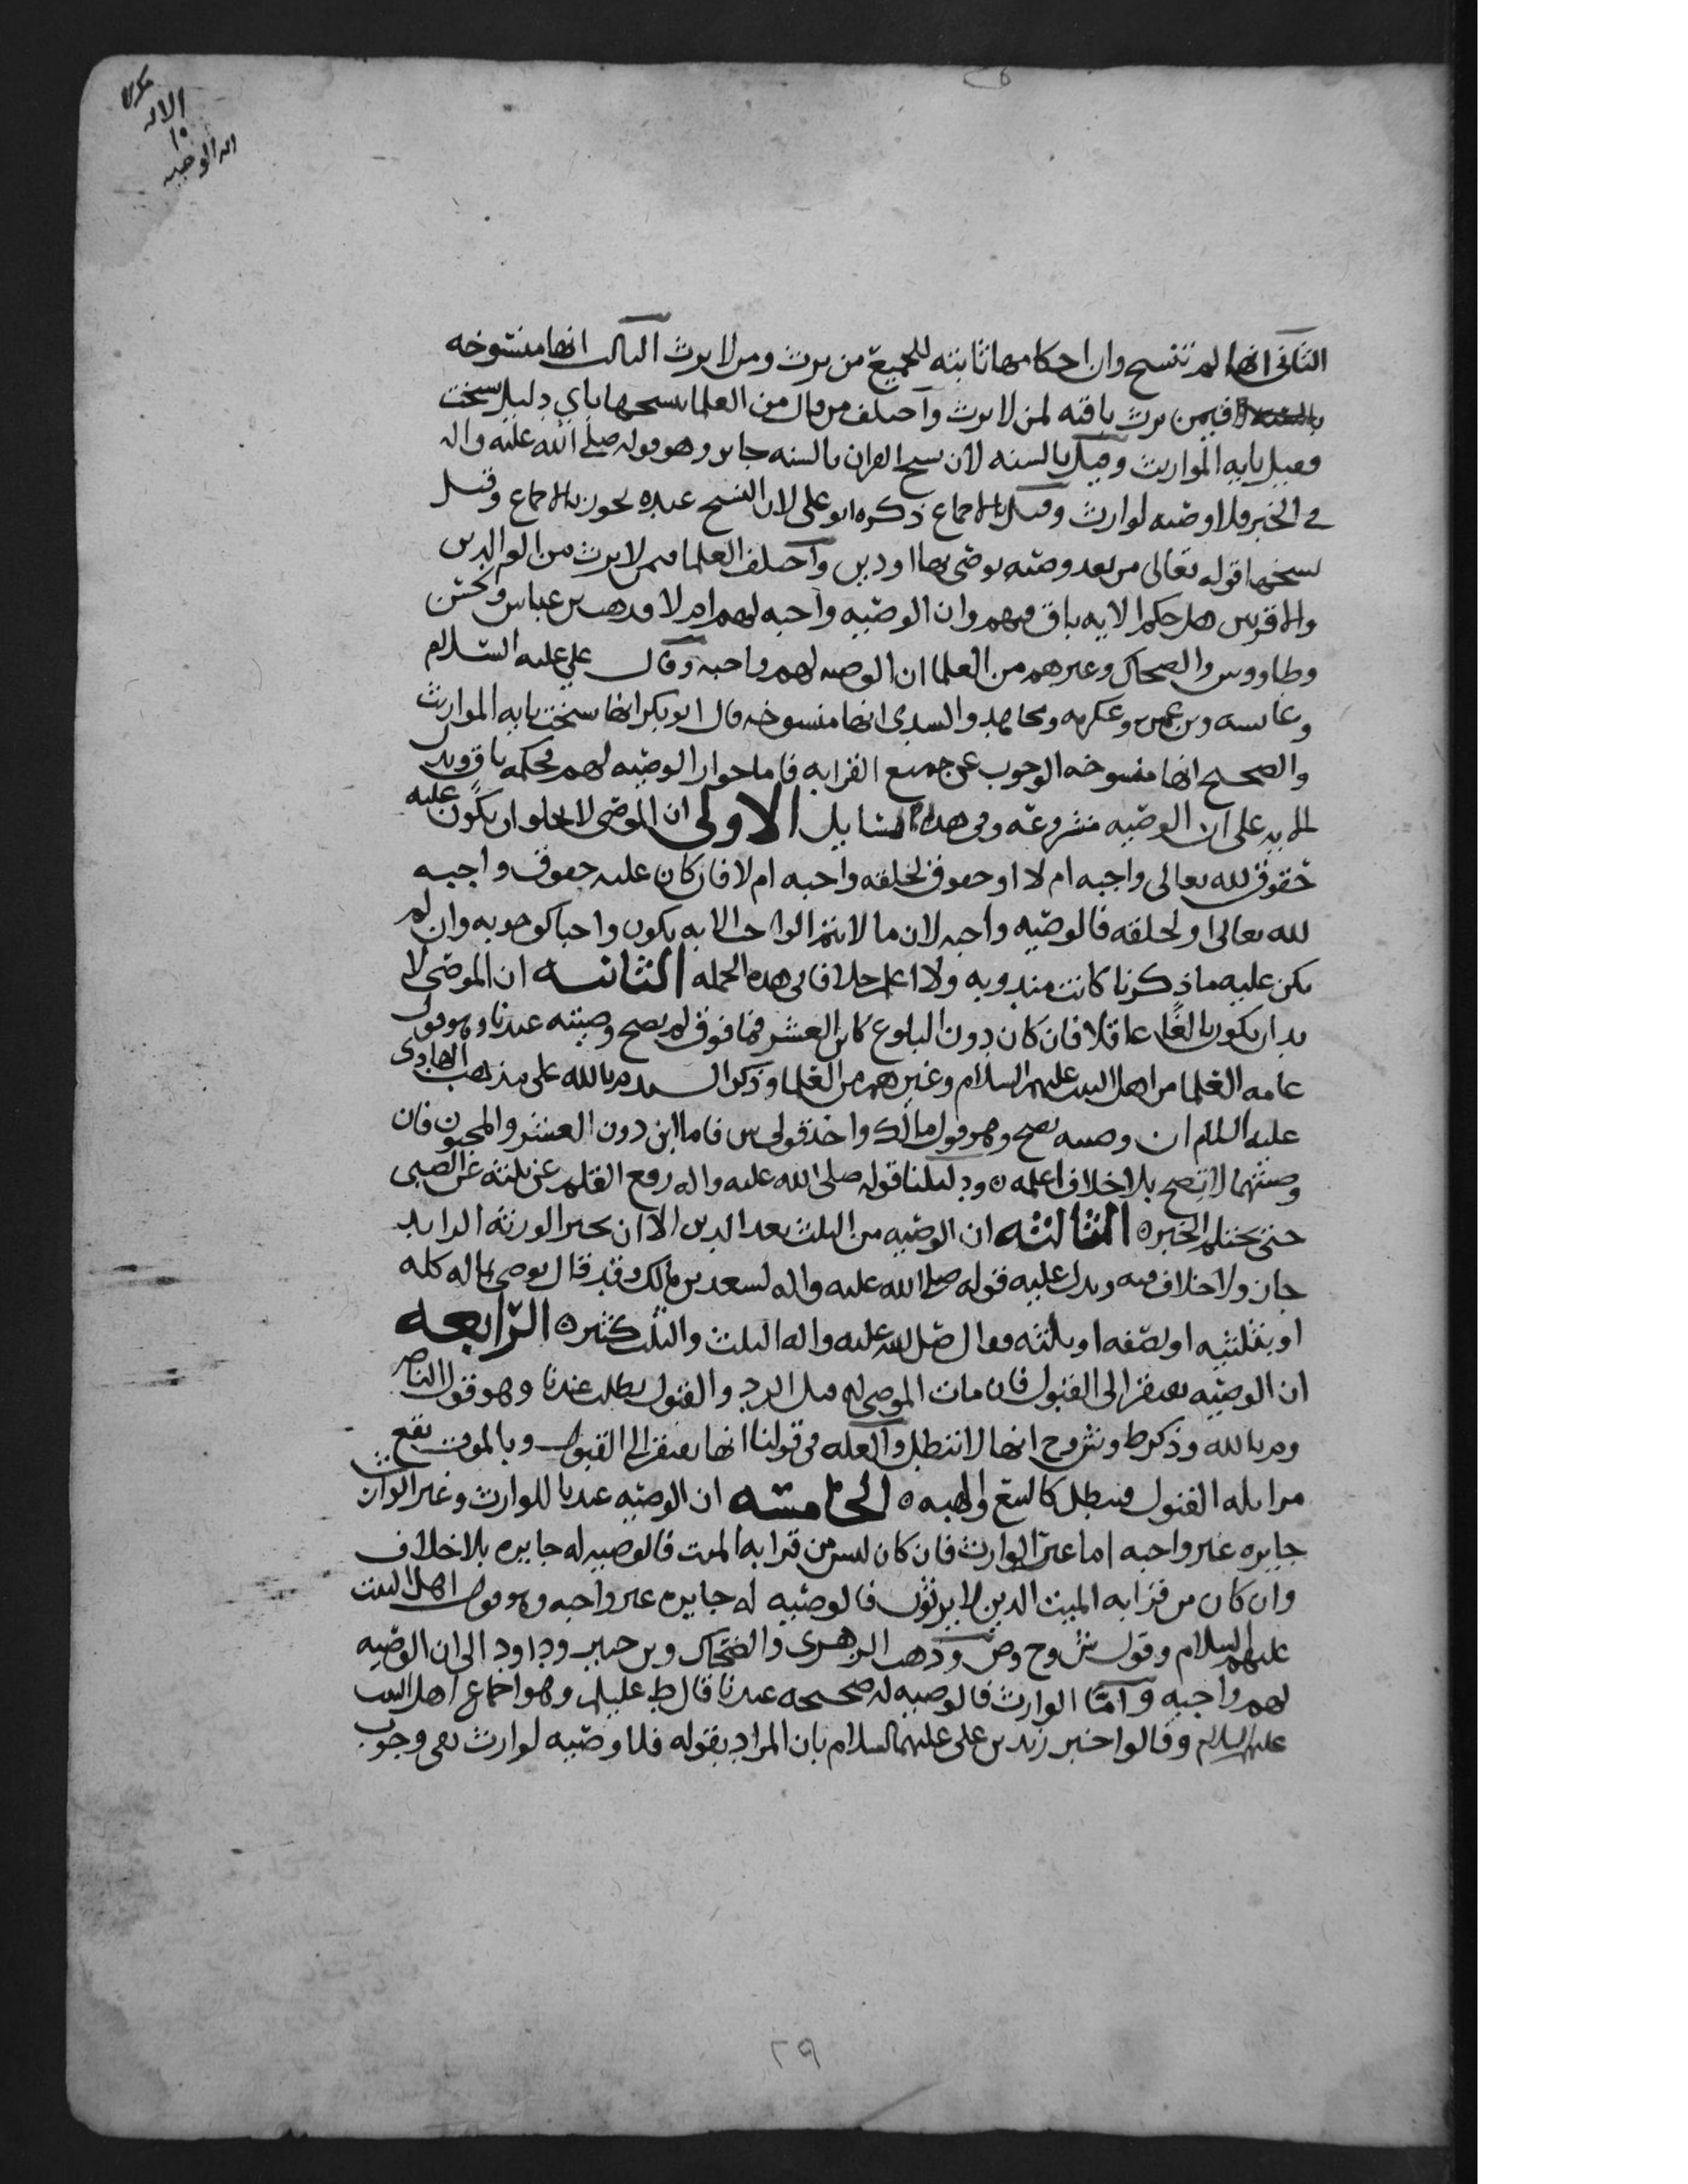 الثاني انها لم تنسخ وان احكامها ثابته للجميع من يرث ومن لا يرث الثالث انها منسوخه
فيمن يرث باقيه لمن لا يرث واختلف من قال من العلما بنسخها باي دليل نسخت
فقيل بايه المواريث وقيل بالسنه لان نسخ القران بالسنه جايز وهو قوله صلى الله عليه واله
في الخبر فلا وصيه لوارث وقيل بالاجماع ذكره ابو علي لان النسخ عنده يجوز بالاجماع وقيل
نسخها قوله تعالى من بعد وصيه يوصى بها او دين واختلف العلما فيمن لا يرث من الوالدين
والاقربين هل حكم الايه باق فيهم وان الوصيه واجبه لهم ام لا فذهب بن عباس وحسن
وطاووس والضحاك وغيرهم من العلما ان الوصيه لهم واجبه وقال علي عليه السلام
وعايشه وبن عمر وعكرمه ومجاهد والسدي انها منسوخه قال ابو بكر انها نسخت بايه المواريث
والصحيح انها منسوخه الوجوب عن جميع القرابه فاما جواز الوصيه لهم فحكمه باق ويدل
الايه على ان الوصيه مشروعه وفي هذا مسايل الاولى ان الموصي لا يخلو ان يكون عليه
حقوق لله تعالى واجبه ام لا او حقوق لخلقه واجبه ام لا فان كان عليه حقوق واجبه
لله تعالى او لخلقه فالوصيه واجبه لان ما لا يتم الواجب الا به يكون واجبا كوجوبه وان لم
يكن عليه ما ذكرنا كانت مندوبه ولا اعلم خلافا في هذه الجمله الثانيه ان الموصي لا
بد ان يكون بالغا عاقلا فان كان دون البلوغ كابن العشر فما فوق لم يصح وصيته عندنا وهو قول
عامه العلما من اهل البيت عليهم السلام وغيرهم من العلما وذكر السيد م بالله على مذهب الهادي
عليه السلام ان وصيته تصح وهو قول مالك واحد قولي ش فاما ابن دون العشر والمجنون فان
وصيتهما لا تصح بلا خلاف اعلمه ودليلنا قوله صلى الله عليه واله رفع القلم عن ثلثه عن الصبي
حتى يحتلم الخبر الثالثه ان الوصيه من الثلث بعد الدين الا ان يجيز الورثه الزايد
جاز ولا خلاف فيه ويدل عليه قوله صلى الله عليه واله لسعد بن مالك وقد قال يوصي بماله كله
او بثلثيه او بنصفه او بثلثه فقال صلى الله عليه واله الثلث والثلث كثير الرابعه
ان الوصيه يفتقر الى القبول فان مات الموصى له قبل الرد والقبول بطلت عندنا وهو قول الناصر
وم بالله وذكر ط وش وح انها لا تبطل والعله في قولنا انها يفتقر الى القبول وبالموت يقع
القبول فيبطل كالبيع والهبه الخامسه ان الوصيه عندنا للوارث وغير الوارث
جايزه غير واجبه اما غير الوارث فان كان ليس من قرابه الميت فالوصيه له جايزه بلا خلاف
وان كان من قرابه الميت الذين لا يرثون فالوصيه له جايزه غير واجبه وهو قول اهل البيت
عليهم السلام وقول ش وح وص وذهب الزهري والضحاك وبن جبير وداود الى ان الوصيه
لهم واجبه واما الوارث فالوصيه له صحيحه عندنا قال ط عليلم وهو اجماع اهل البيت
عليهم السلام وقالوا خبر زيد بن علي عليهما السلام بان المراد بقوله فلا وصيه لوارث نفي وجوب
٢٩